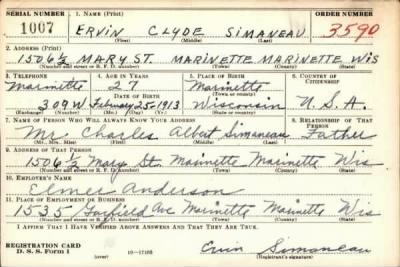 SERIAL NUMBER 1. NAME (Print) ORDER NUMBER
1007 ERVIN CLYDE SIMANEAU 3590
(First) (Middle) (Last)
2. ADDRESS (Print)
1506 1/2 MARY ST. MARINETTE MARINETTE WIS
(Number and street or R. F. D. number) (Town) (County) (State)
3. TELEPHONE 4. AGE IN YEARS 5. PLACE OF BIRTH 6. COUNTRY OF CITIZENSHIP
Marinette 27 Marinette
DATE OF BIRTH
309W February 25-1913 Wisconsin U.S.A.
7. NAME OF PERSON WHO WILL ALWAYS KNOW YOUR ADDRESS 8. RELATIONSHIP OF THAT PERSON
Mr. Charles Albert Simaneau Father
(Mr., Mrs., Miss) (First) (Middle) (Last)
9. ADDRESS OF THAT PERSON
1506 1/2 Mary St. Marinette Marinette Wis
(Number and street or R. F. D. number) (Town) (County) (State)
10. EMPLOYER'S NAME
Elmer Anderson
11. PLACE OF EMPLOYMENT OR BUSINESS
1535 Garfield Ave Marinette Marinette Wis
(Number and street or R. F. D. number) (Town) (County) (State)
I AFFIRM THAT I HAVE VERIFIED ABOVE ANSWERS AND THAT THEY ARE TRUE.
REGISTRATION CARD
D. S. S. Form 1 (over) Ervin Simaneau
(Registrant's signature)